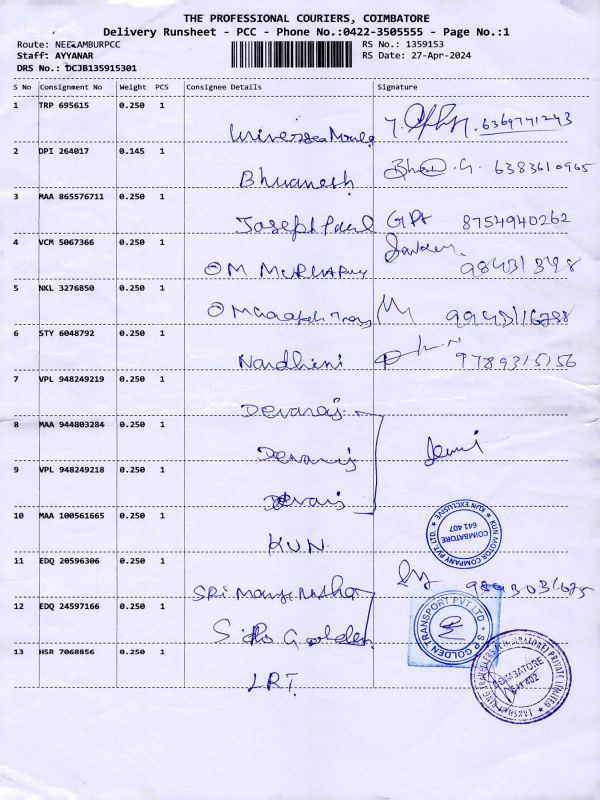 THE PROFESSIONAL COURIERS, COIMBATORE
Delivery Runsheet - PCC - Phone No.:0422-3505555 - Page No.:1
Route: NEELAMBURPCC RS No.: 1359153
Staff: AYYANAR RS Date: 27-Apr-2024
DRS No.: DCJB135915301
S No Consignment No Weight PCS Consignee Details Signature
1 TRP 695615 0.250 1
6369741243
2 DPI 264017 0.145 1
Bhuanesh 6383610965
3 MAA 865576711 0.250 1
Joseph Paul 8754940262
4 VCM 5067366 0.250 1
OM
5 NKL 3276850 0.250 1
OM
6 STY 6048792 0.250 1
Nandhini 9789315156
7 VPL 948249219 0.250 1
Devaraj
8 MAA 944803284 0.250 1
Devaraj
9 VPL 948249218 0.250 1
Devaraj
10 MAA 100561665 0.250 1
KUN
KUN MOTOR COMPANY PVT. LTD. ★ KUN EXCLUSIVE ★
COIMBATORE
641 407
11 EDQ 20596306 0.250 1
SRI
12 EDQ 24597166 0.250 1
Golden
S P GOLDEN TRANSPORT PVT LTD
13 HSR 7068856 0.250 1
LRT
COIMBATORE
641 402
PRIVATE LIMITED